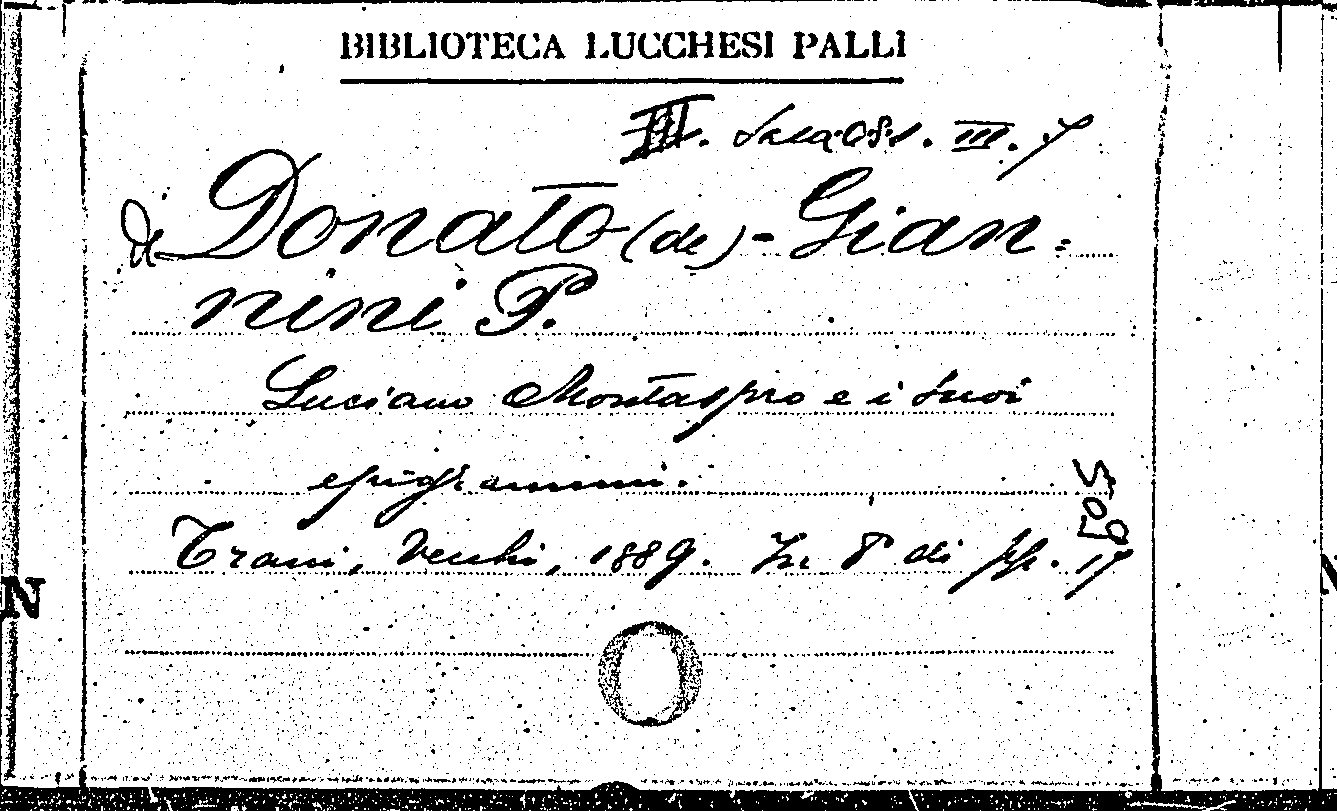 BIBLIOTECA LUCCHESI PALLI
III. III. 7
di Donato (de) - Gian=
nini P.
Luciano Montaspro e i suoi
epigrammi.
Trani, Vecchi, 1889. In 8° di pp. 17
5059
N